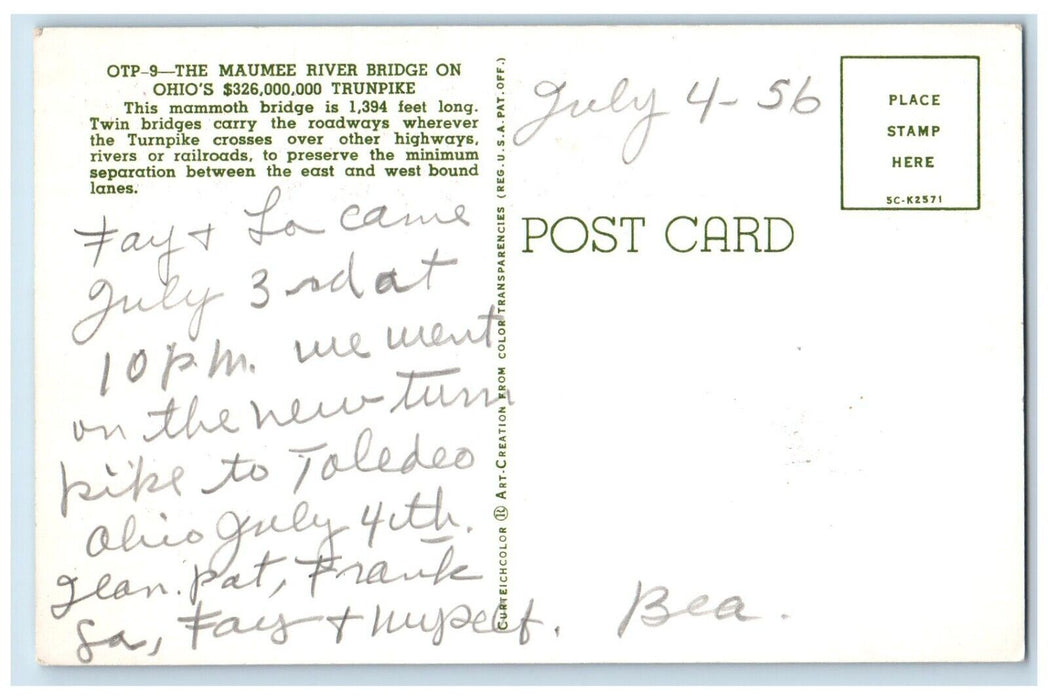 OTP-9—THE MAUMEE RIVER BRIDGE ON
OHIO'S $326,000,000 TRUNPIKE
This mammoth bridge is 1,394 feet long.
Twin bridges carry the roadways wherever
the Turnpike crosses over other highways,
rivers or railroads, to preserve the minimum
separation between the east and west bound
lanes.
Fay + La came
July 3rd at
10 p.m. we went
on the new turn
pike to Toledeo
Ohio July 4th.
Jean. pat, Frank
La, Fay + myself.
Bea.
CURTEICHCOLOR ® ART-CREATION FROM COLOR TRANSPARENCIES (REG. U.S.A. PAT. OFF.)
July 4- 56
POST CARD
PLACE
STAMP
HERE
5C-K2571